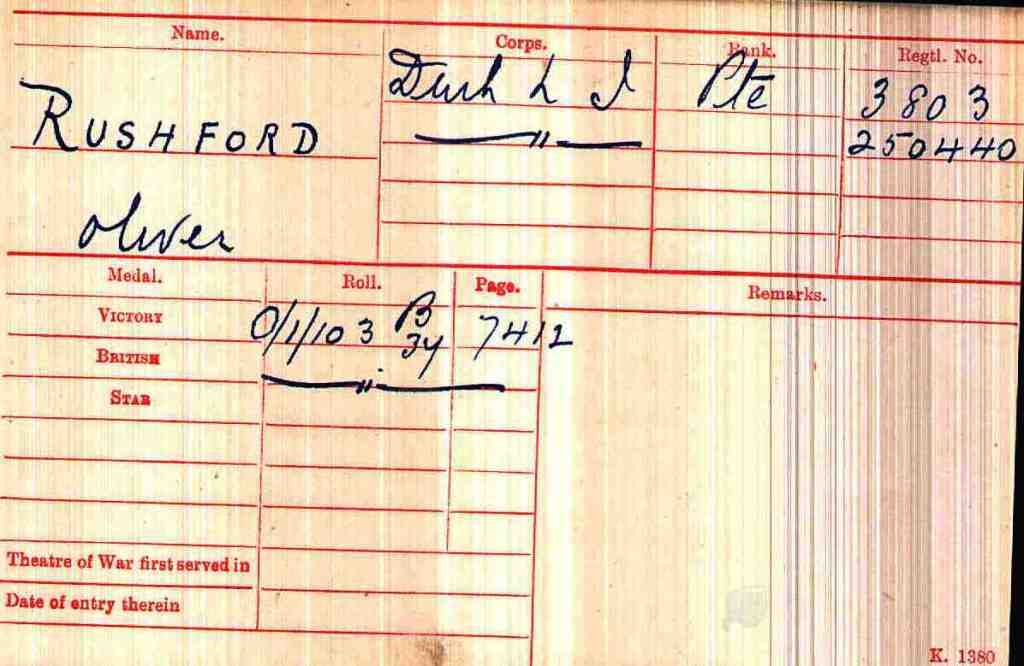 Name. Corps. Rank. Regtl. No.
RUSHFORD Durh L I Pte 3803
—"— 250440
Oliver
Medal. Roll. Page. Remarks.
VICTORY 0/1/103 B 34 7412
BRITISH —"—
STAR
Theatre of War first served in
Date of entry therein
K. 1380